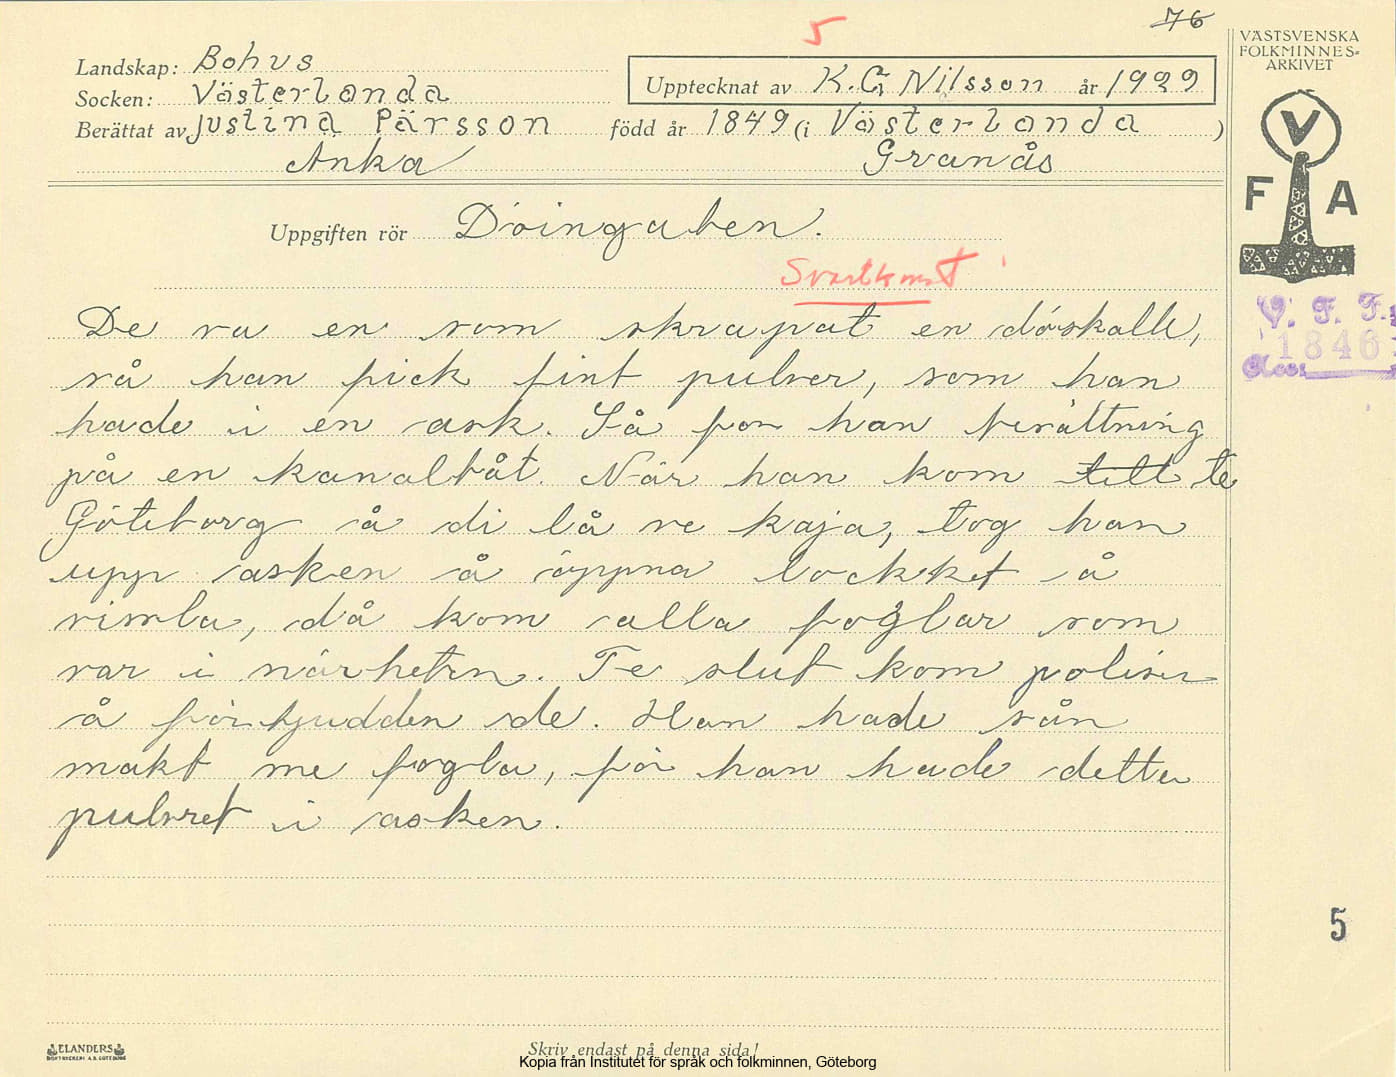 76
5
VÄSTSVENSKA
FOLKMINNES=
ARKIVET
Landskap: Bohus
Socken: Västerlanda
Upptecknat av K.G. Nilsson år 1929
Berättat av Justina Pärsson född år 1849 (i Västerlanda )
Anka Granås
V
F A
Uppgiften rör Döingaben.
Svartkonst
V. F. F.
1846
Acc.
De va en som skrapat en döskalle,
så han fick fint pulver, som han
hade i en ask. Så for han besättning
på en kanalbåt. När han kom till te
Göteborg å di lå ve kaja, tog han
upp asken å öppna lockket å
visla, då kom alla foglar som
var i närheten. Te slut kom polisen
å förbjudden de. Han hade sån
makt me fogla, för han hade detta
pulvret i asken.
5
ELANDERS
BOKTRYCKERI A.B. GÖTEBORG
Skriv endast på denna sida!
Kopia från Institutet för språk och folkminnen, Göteborg